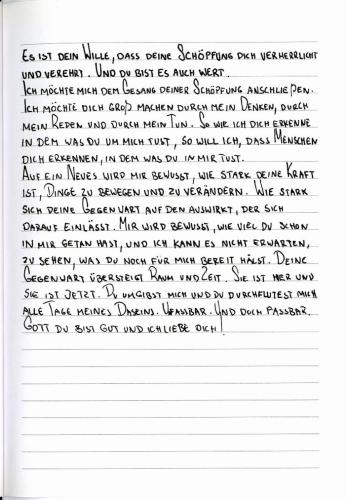 Es ist dein Wille, dass deine Schöpfung dich verherrlicht
und verehrt. Und du bist es auch wert.
Ich möchte mich dem Gesang deiner Schöpfung anschließen.
Ich möchte dich groß machen durch mein Denken, durch
mein Reden und durch mein Tun. So wie ich dich erkenne
in dem was du um mich tust, so will ich, dass Menschen
dich erkennen, in dem was du in mir tust.
Auf ein Neues wird mir bewusst, wie stark deine Kraft
ist, Dinge zu bewegen und zu verändern. Wie stark
sich deine Gegenwart auf den auswirkt, der sich
darauf einlässt. Mir wird bewusst, wie viel du schon
in mir getan hast, und ich kann es nicht erwarten,
zu sehen, was du noch für mich bereit hälst. Deine
Gegenwart übersteigt Raum und Zeit. Sie ist hier und
sie ist jetzt. Du umgibst mich und du durchflutest mich
alle Tage meines Daseins. Ufassbar. Und doch fassbar.
Gott du bist gut und ich liebe dich!